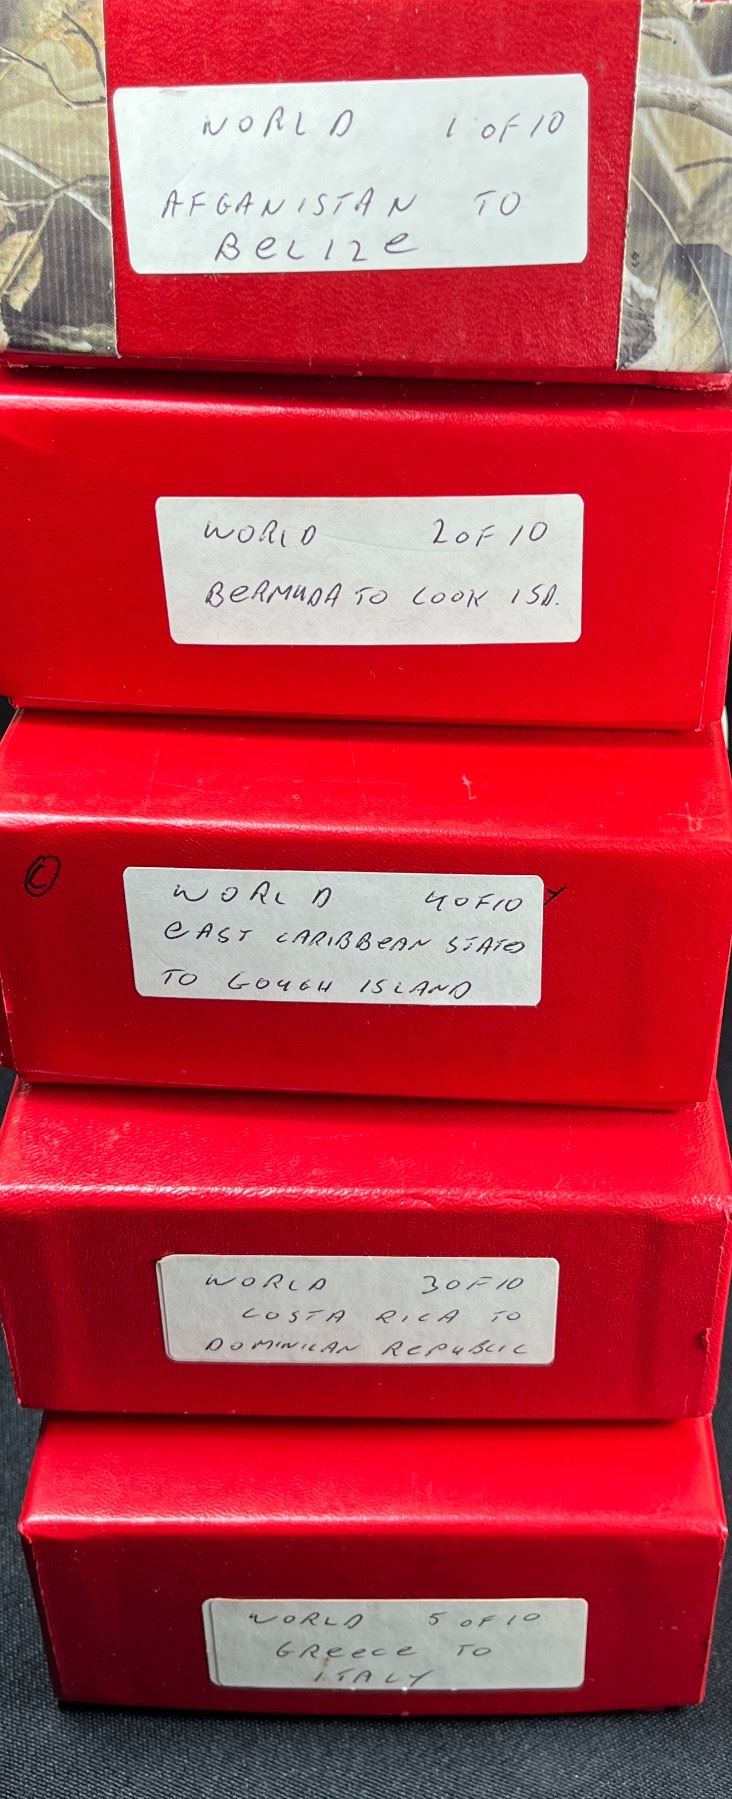 WORLD 1 OF 10
AFGANISTAN TO
BELIZE
WORLD 2 OF 10
BERMUDA TO COOK ISD.
©
WORLD 4 OF 10 Y
EAST CARIBBEAN STATES
TO GOUGH ISLAND
WORLD 3 OF 10
COSTA RICA TO
DOMINICAN REPUBLIC
WORLD 5 OF 10
GREECE TO
ITALY